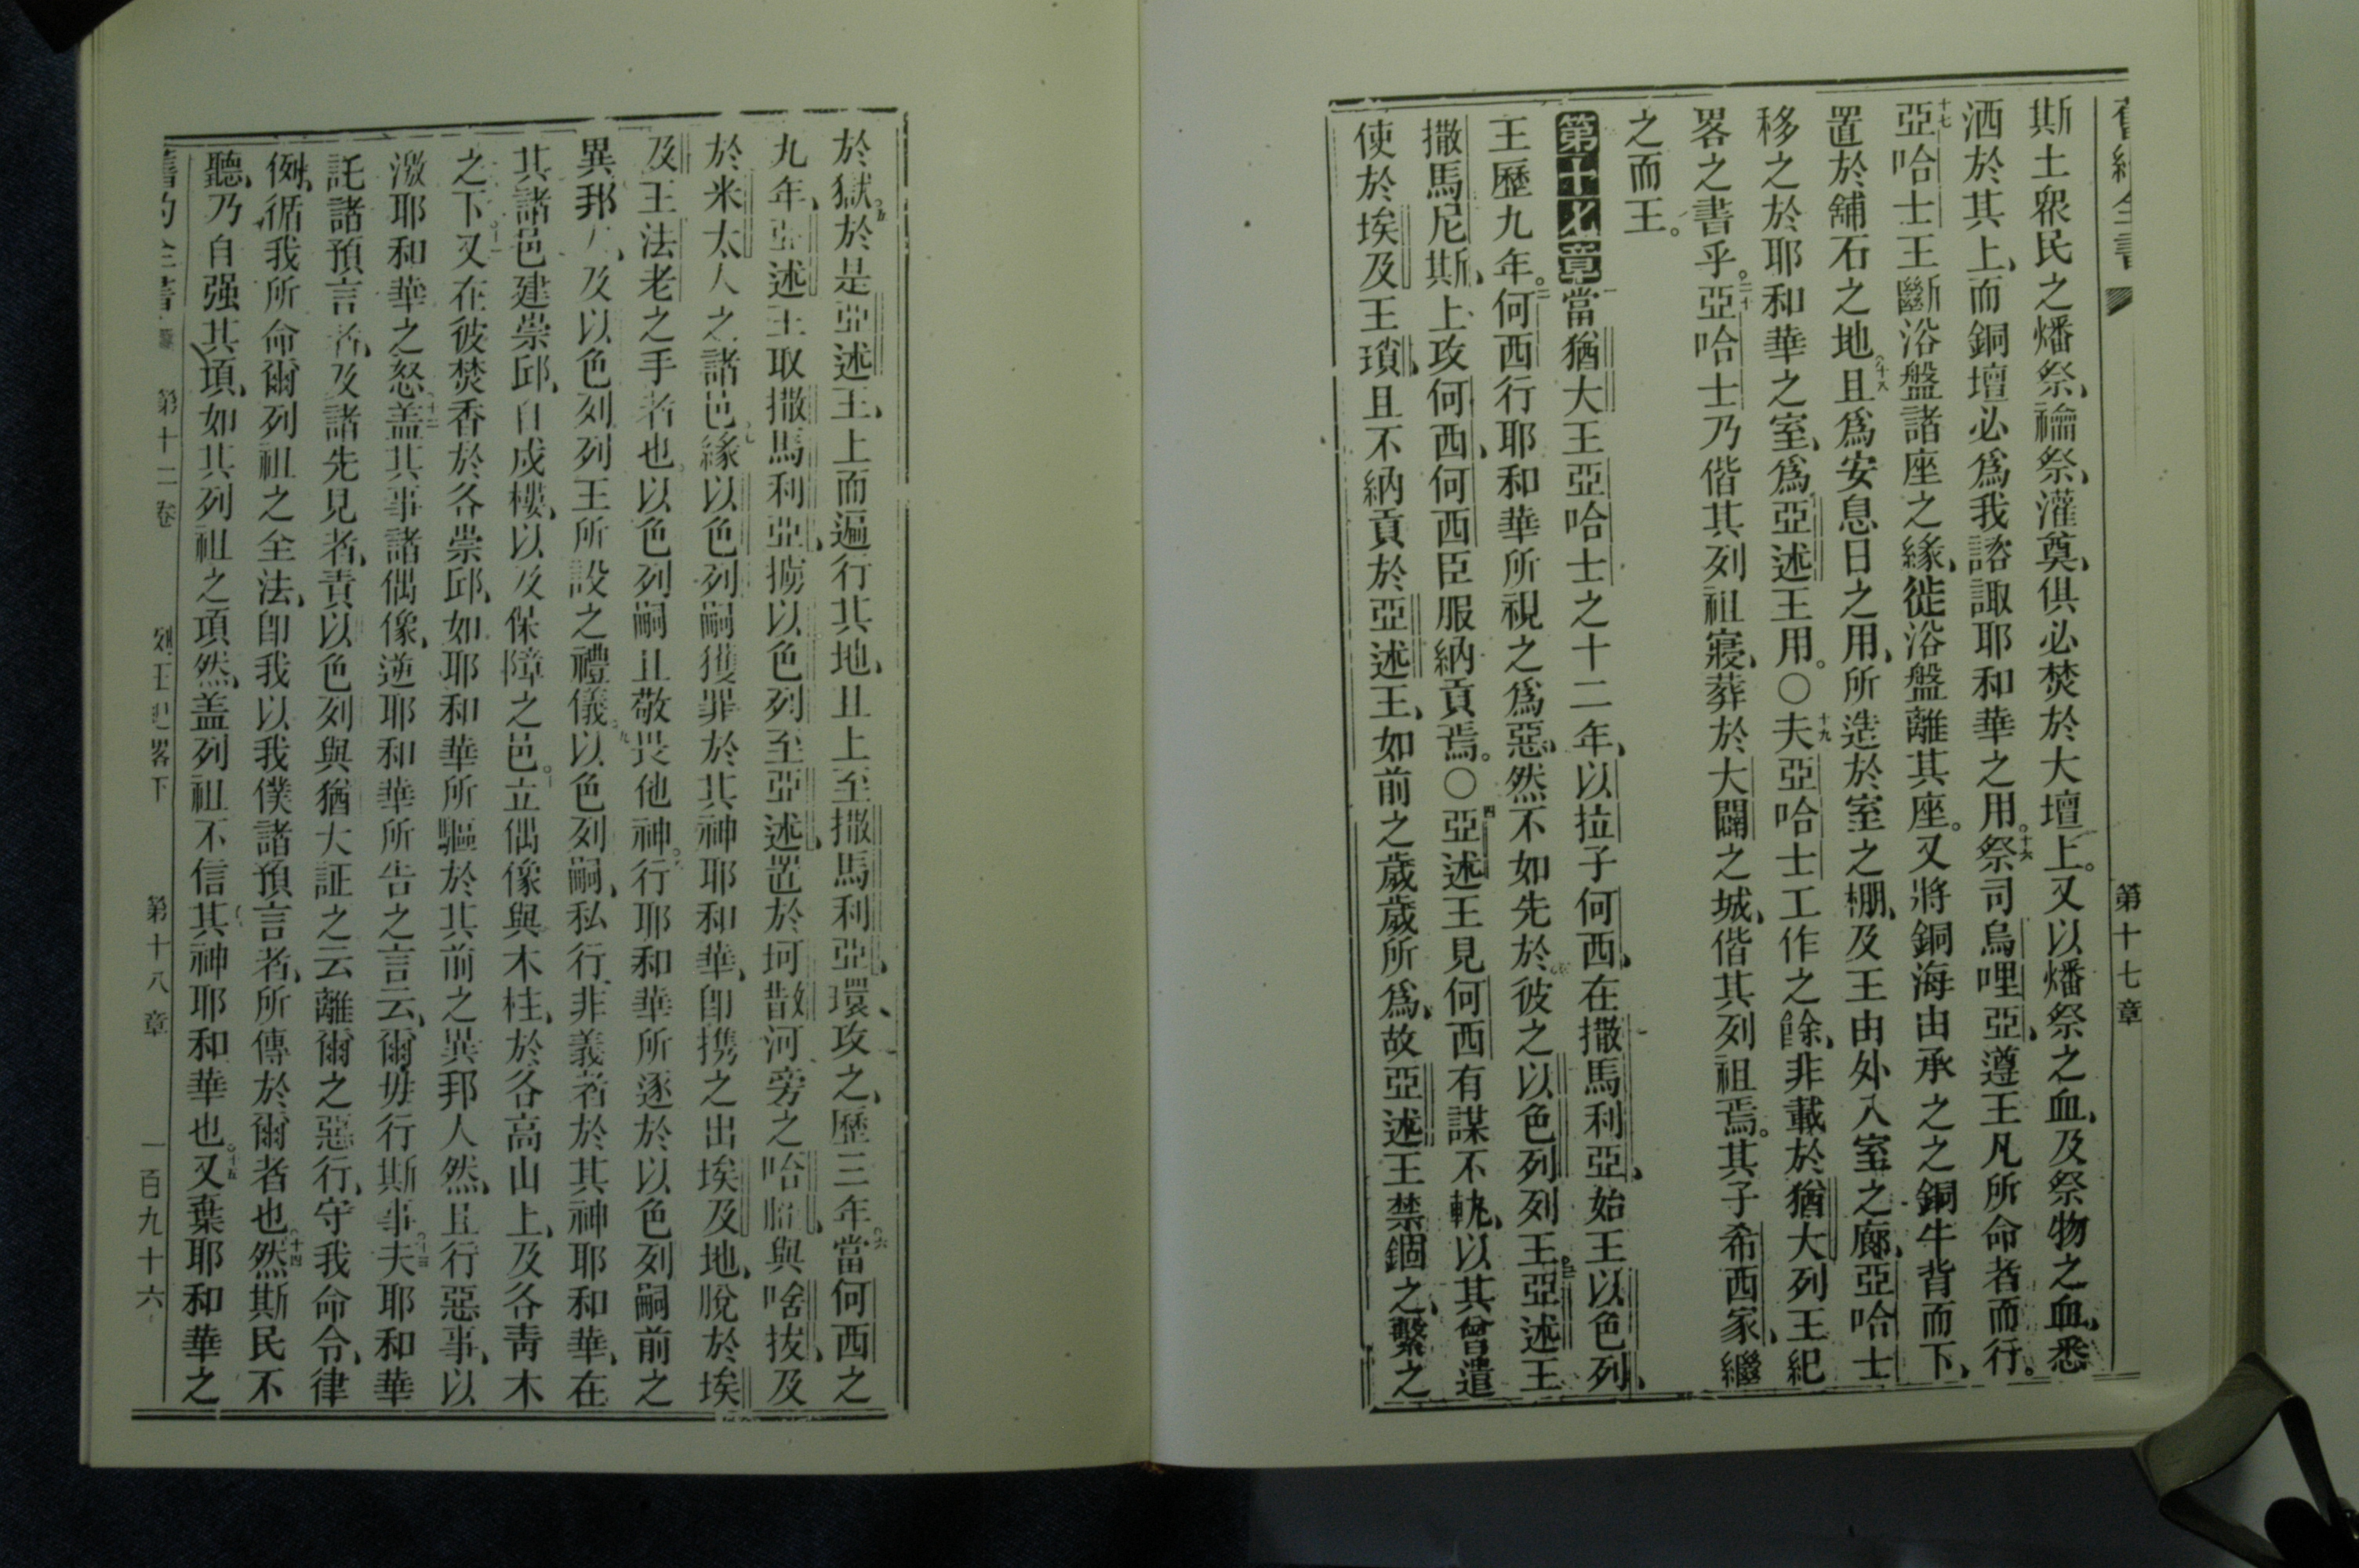 第十七章
斯土眾民之燔祭、禴祭、灌奠、俱必焚於大壇上。又以燔祭之血、及祭物之血、悉
洒於其上、而銅壇必爲我諮諏耶和華之用。十六祭司烏哩亞、遵王凡所命者而行。
十七亞哈士王斷浴盤諸座之緣、徙浴盤離其座。又將銅海由承之之銅牛背而下、
置於舖石之地。十八且爲安息日之用、所造於室之棚、及王由外入室之廊、亞哈士
移之於耶和華之室、爲亞述王用。〇十九夫亞哈士工作之餘、非載於猶大列王紀
畧之書乎。二十亞哈士乃偕其列祖寢、葬於大闢之城、偕其列祖焉。其子希西家、繼
之而王。
第十七章 一當猶大王亞哈士之十二年、以拉子何西、在撒馬利亞、始王以色列、
王歷九年。二何西行耶和華所視之爲惡、然不如先於彼之以色列列王。三亞述王
撒馬尼斯、上攻何西、何西臣服納貢焉。〇四亞述王見何西有謀不軌、以其曾遣
使於埃及王瑣、且不納貢於亞述王、如前之歲歲所爲、故亞述王禁錮之、繫之
於獄。五於是亞述王、上而遍行其地、且上至撒馬利亞、環攻之、歷三年。六當何西之
九年、亞述王取撒馬利亞、擄以色列至亞述、置於坷散河旁之哈臘、與啥拔、及
於米太人之諸邑。七緣以色列嗣獲罪於其神耶和華、卽携之出埃及地、脫於埃
及王法老之手者也。以色列嗣且敬畏他神。八行耶和華所逐於以色列嗣前之
異邦人、及以色列列王所設之禮儀。九以色列嗣、私行非義者於其神耶和華、在
其諸邑建崇邱、自戍樓、以及保障之邑。十立偶像與木柱、於各高山上、及各靑木
之下。十一又在彼焚香於各崇邱、如耶和華所驅於其前之異邦人然、且行惡事、以
激耶和華之怒。十二盖其事諸偶像、逆耶和華所告之言云、爾毋行斯事。十三夫耶和華
託諸預言者、及諸先見者、責以色列與猶大証之云、離爾之惡行、守我命令、律
例、循我所命爾列祖之全法、卽我以我僕諸預言者、所傳於爾者也。十四然斯民不
聽、乃自强其項、如其列祖之項然、盖列祖不信其神耶和華也。十五又棄耶和華之
第十二卷 列王紀畧下 第十八章 一百九十六